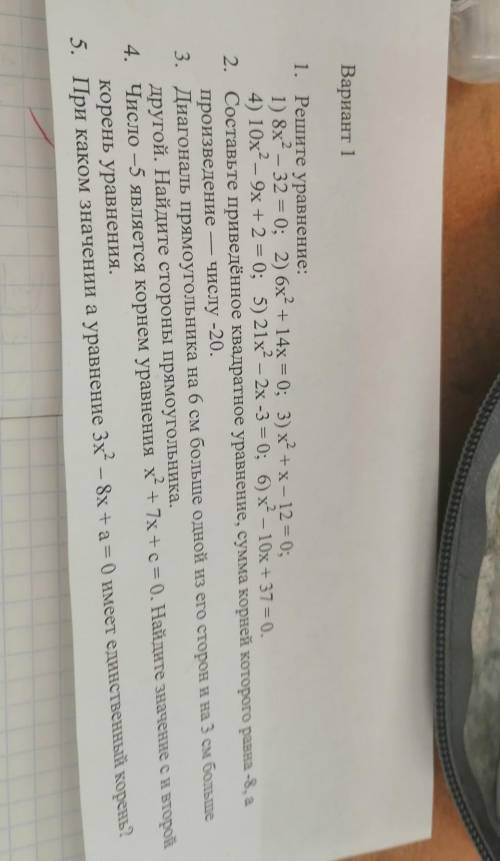 Вариант 1
1. Решите уравнение:
1) 8x² – 32 = 0; 2) 6x² + 14x = 0; 3) x² + x – 12 = 0;
4) 10x² – 9x + 2 = 0; 5) 21x² – 2x -3 = 0; 6) x² – 10x + 37 = 0.
2. Составьте приведённое квадратное уравнение, сумма корней которого равна -8, а
произведение — числу -20.
3. Диагональ прямоугольника на 6 см больше одной из его сторон и на 3 см больше
другой. Найдите стороны прямоугольника.
4. Число –5 является корнем уравнения x² + 7x + c = 0. Найдите значение с и второй
корень уравнения.
5. При каком значении а уравнение 3x² – 8x + a = 0 имеет единственный корень?